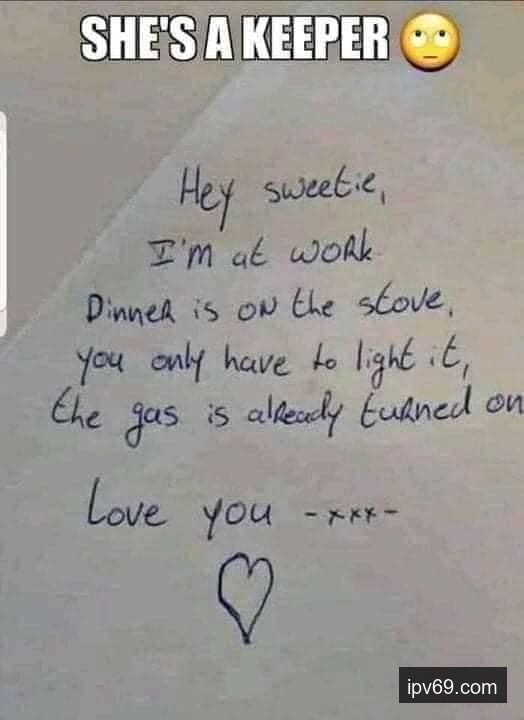 SHE'S A KEEPER 🙄
Hey sweetie,
I'm at work
Dinner is on the stove,
you only have to light it,
the gas is already turned on
Love you -xxx-
ipv69.com